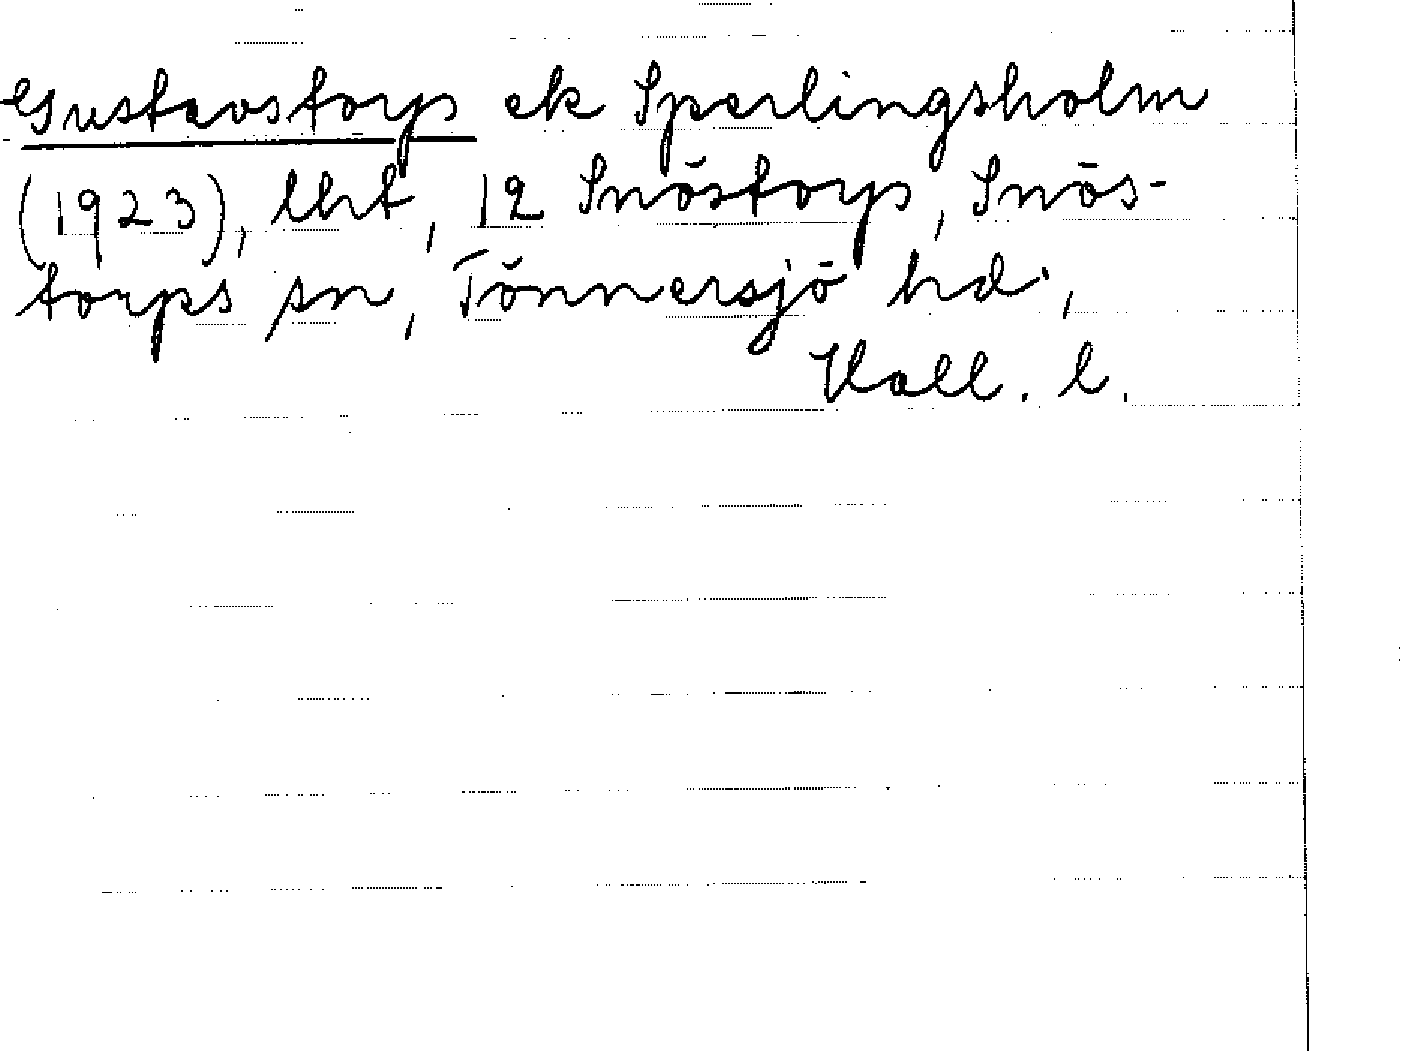 Gustavstorp ek Sperlingsholm
(1923), lht, 12 Snöstorp, Snös-
torps sn, Tönnersjö hd,
Hall. l.